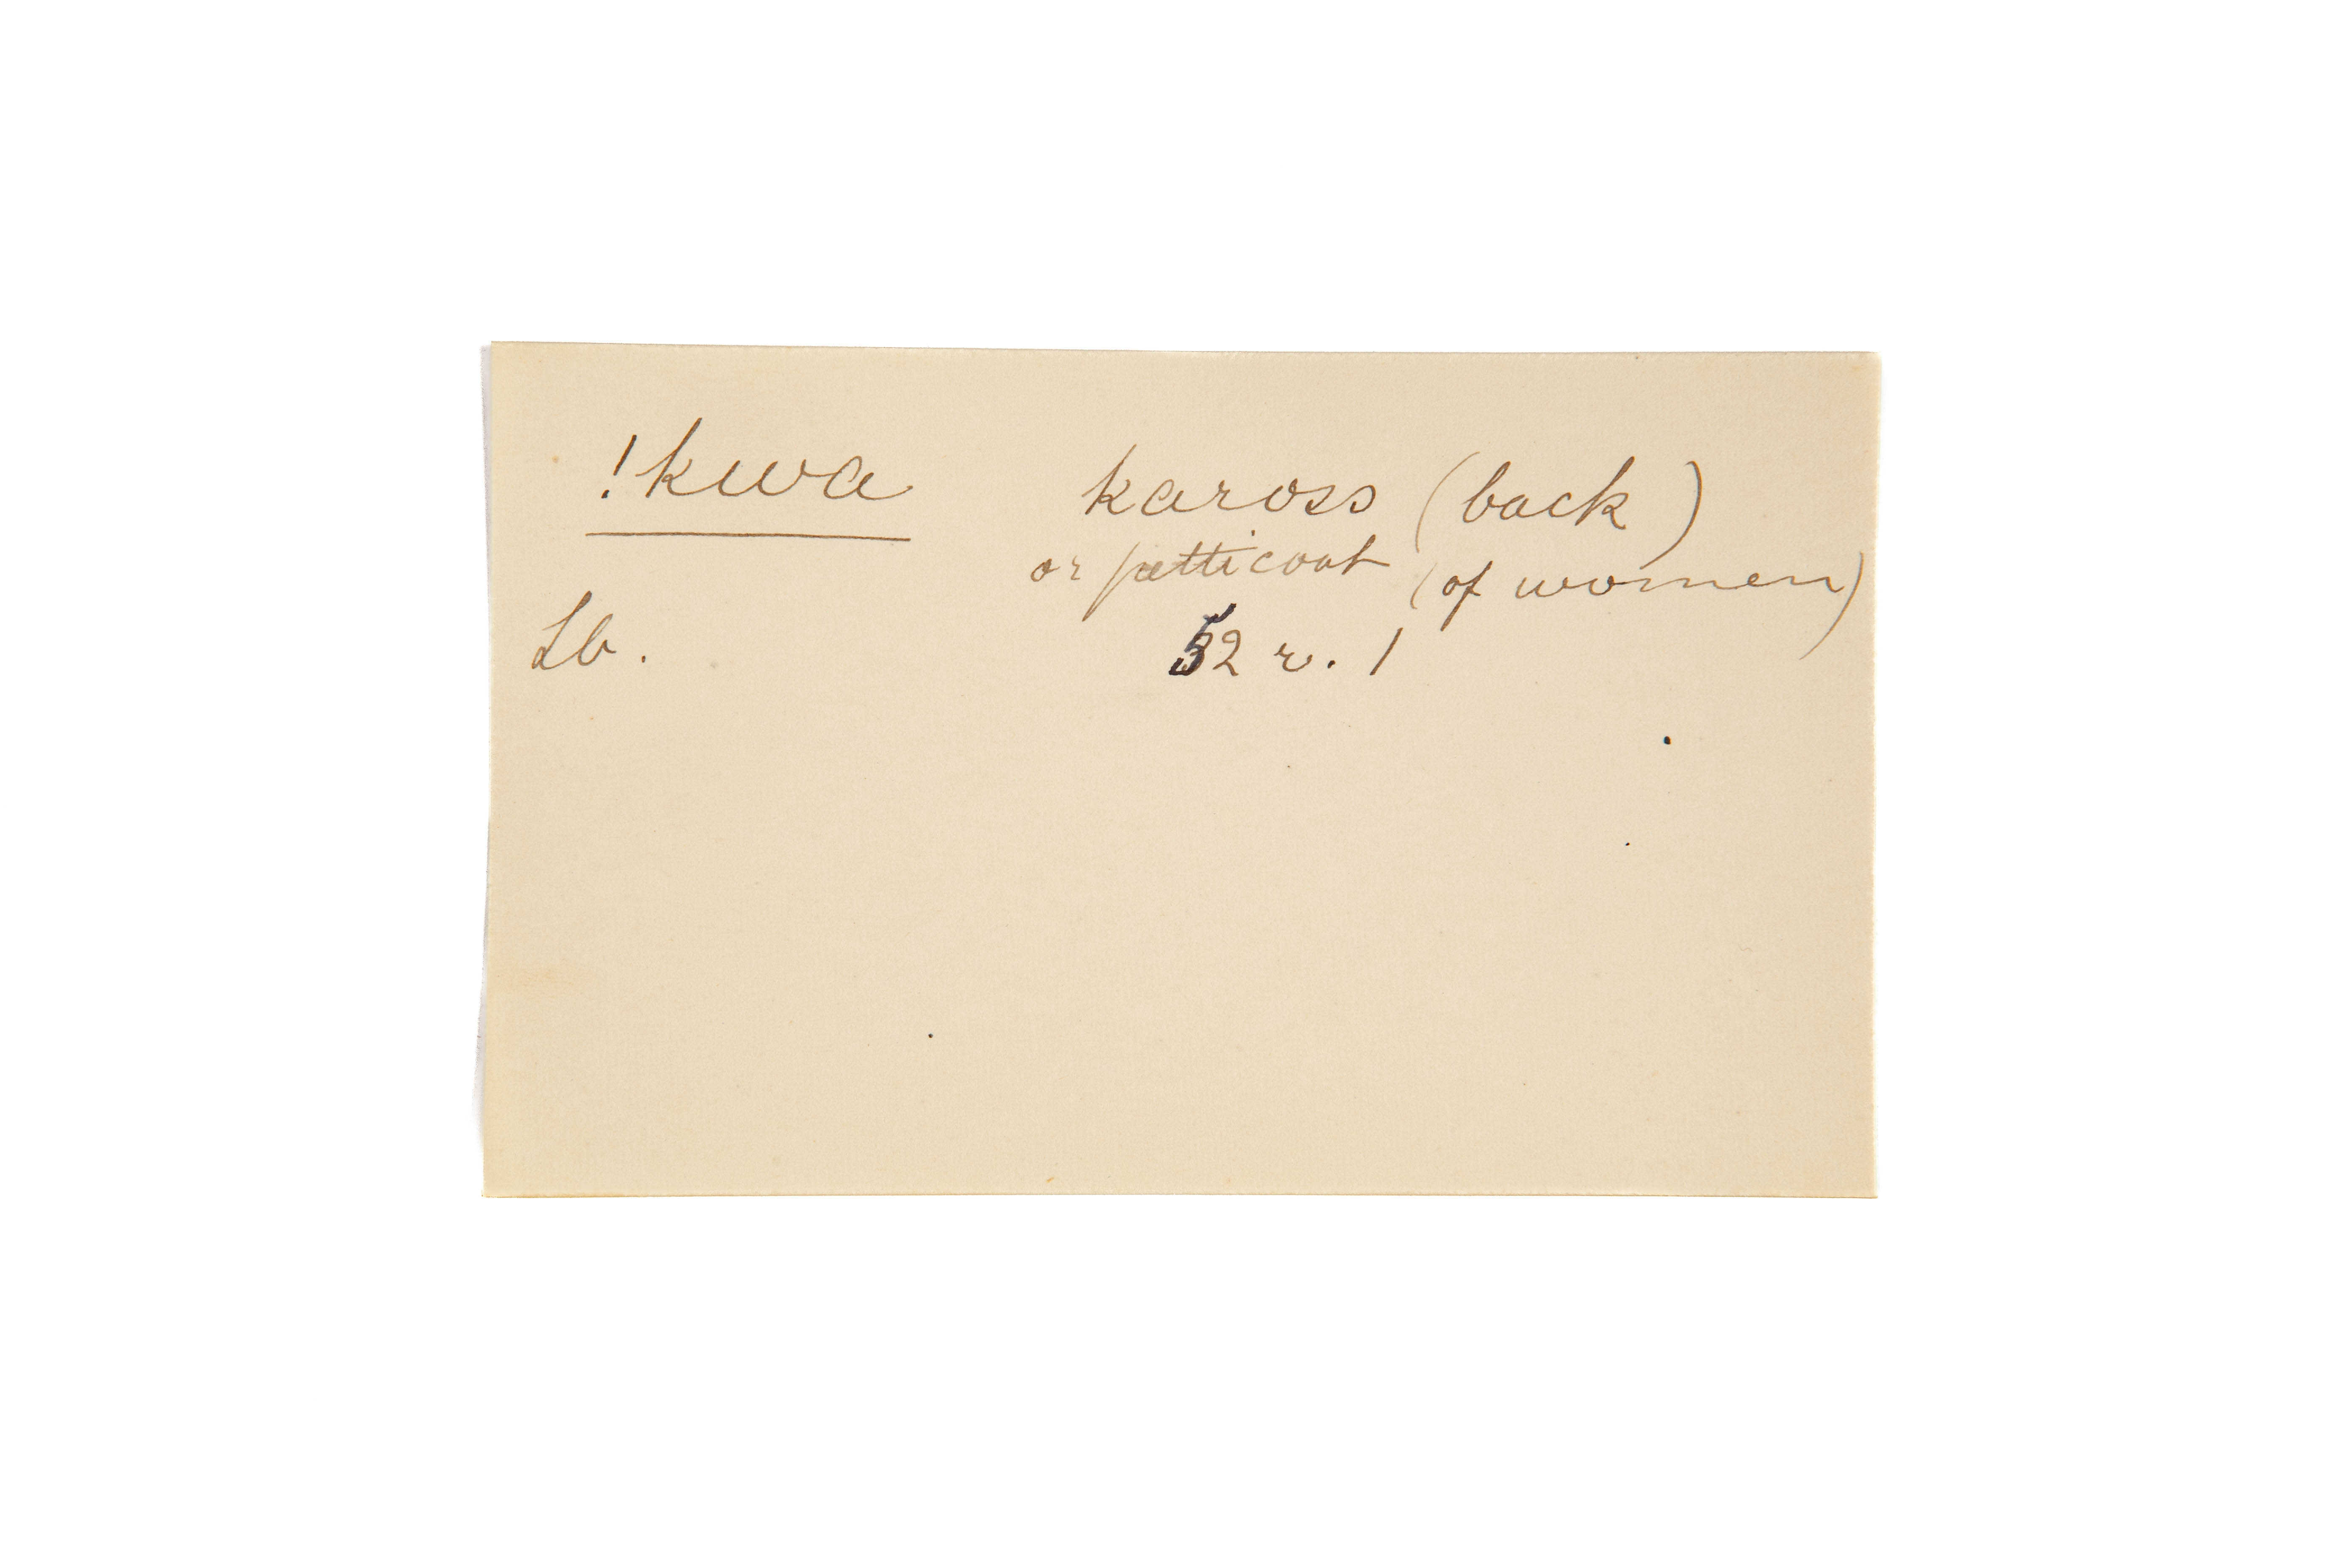 !kwa kaross (back)
or petticoat (of women)
Lb. 52 r. 1